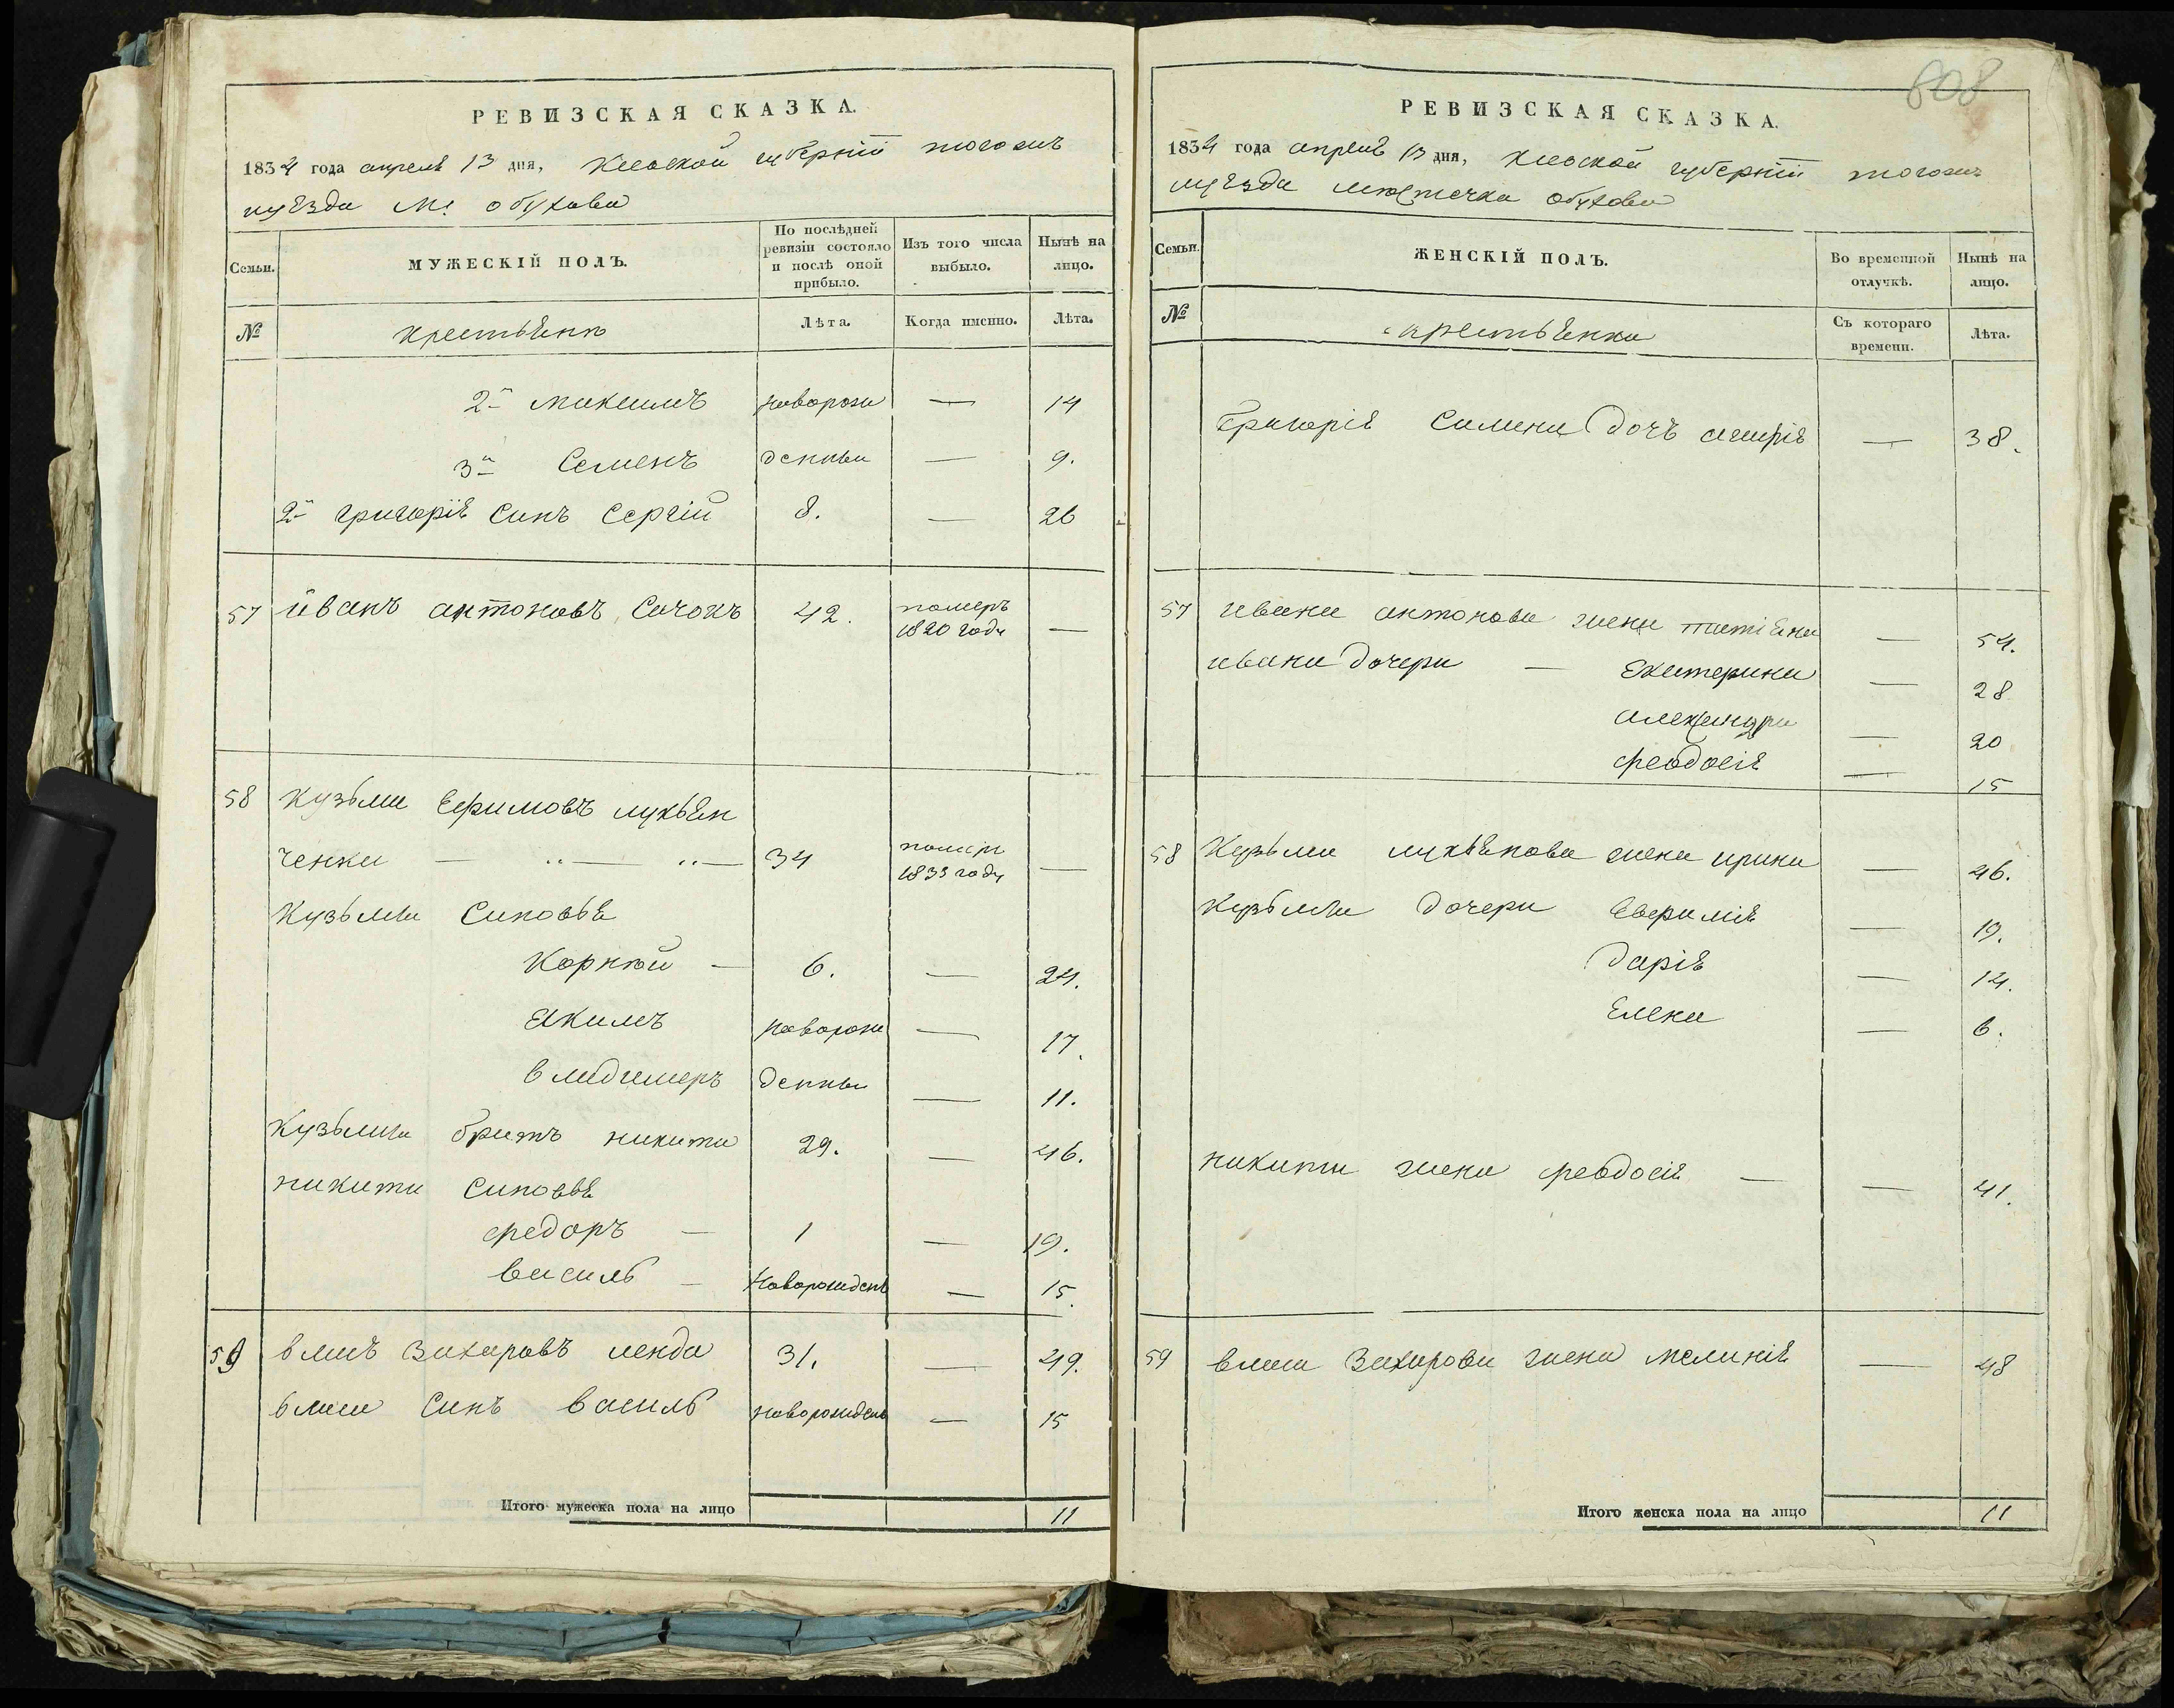 РЕВИЗСКАЯ СКАЗКА.
1834 года апреля 13 дня, Киевской губернии тогожъ
уезда м. обухова
Семьи.
МУЖЕСКІЙ ПОЛЪ.
По послѣдней ревизіи состояло и послѣ оной прибыло.
Изъ того числа выбыло.
Нынѣ на лицо.
№
крестьяни
Лѣта.
Когда именно.
Лѣта.
2й максимъ новорож — 14
3й Семенъ денные — 9.
2й григорія Синъ Сергій 8. — 26
57 иванъ антоновъ Сачокъ 42. померъ 1820 году —
58 Кузьма Ефимовъ лукьян
ченко — 34 померъ 1833 году —
Кузьмы Синовья
Корнѣй — 6. — 24.
Якимъ новорож — 17.
владимеръ денные — 11.
Кузьмы братъ никита 29. — 46.
никиты Синовья
федоръ — 1 — 19.
василь — Новорожден — 15.
59 власъ Захаровъ ленда 31. — 49.
власа Синъ василь новорожден — 15
Итого мужеска пола на лицо 11
608
РЕВИЗСКАЯ СКАЗКА.
1834 года апреля 13 дня, Киевской губерніи тогожъ
уезда местечка обухова
Семьи.
ЖЕНСКІЙ ПОЛЪ.
Во временной отлучкѣ.
Нынѣ на лицо.
№
крестьянки
Съ котораго времени.
Лѣта.
Григорія дочъ — 38.
57 ивана антонова жена татіяна — 54.
ивана дочери — Екатерина — 28
александра — 20
феодосія — 15
58 Кузьмы лукьянова жена ирина — 46.
Кузьмы дочери Евфимія — 19.
Дарія — 14.
Елена — 6.
никиты жена феодосія — — 41.
59 власа Захарова жена меланія — 48
Итого женска пола на лицо 11